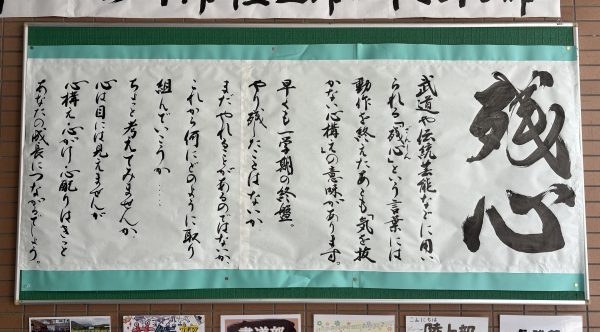 残心
武道や伝統芸能などに用い
られる「残心」という言葉には
ざんしん
動作を終えたあとも「気を抜
かない心構え」の意味があります。
早くも一学期の終盤。
やり残したことはないか
まだやれることがあるのではないか、
これから何にどのように取り
組んでいこうか……
ちょと考えてみませんか。
心は目には見えませんが
心構え、心がけ、心配りはきっと
あなたの成長につながるでしょう。
書道部
こんにちは
陸上部